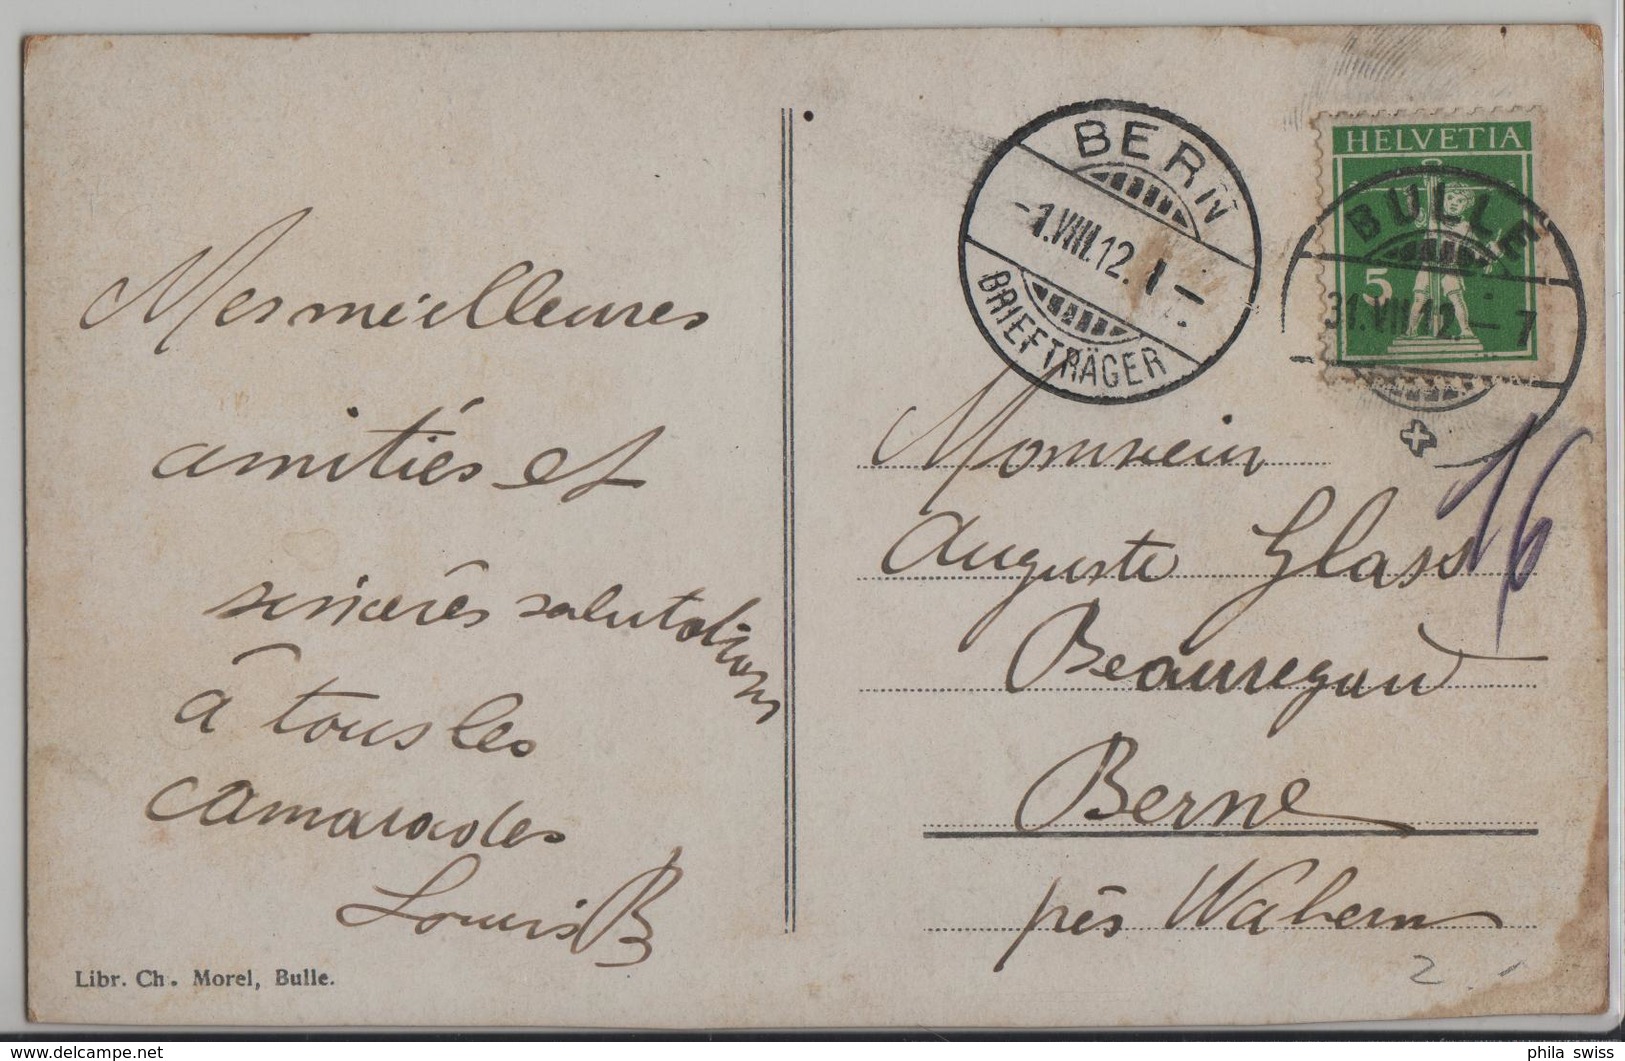 Mes meilleures
amitiés et
sincères salutations
à tous les
camarades
Louis B
Libr. Ch. Morel, Bulle.
BERN
-1.VIII.12. 1 -
BRIEFTRÄGER
HELVETIA
5
BULLE
31.VII.12. - 7
16
Monsieur
Auguste Glass
Beauregard
Berne
pès Wabern
2
delcampe.net
phila_swiss